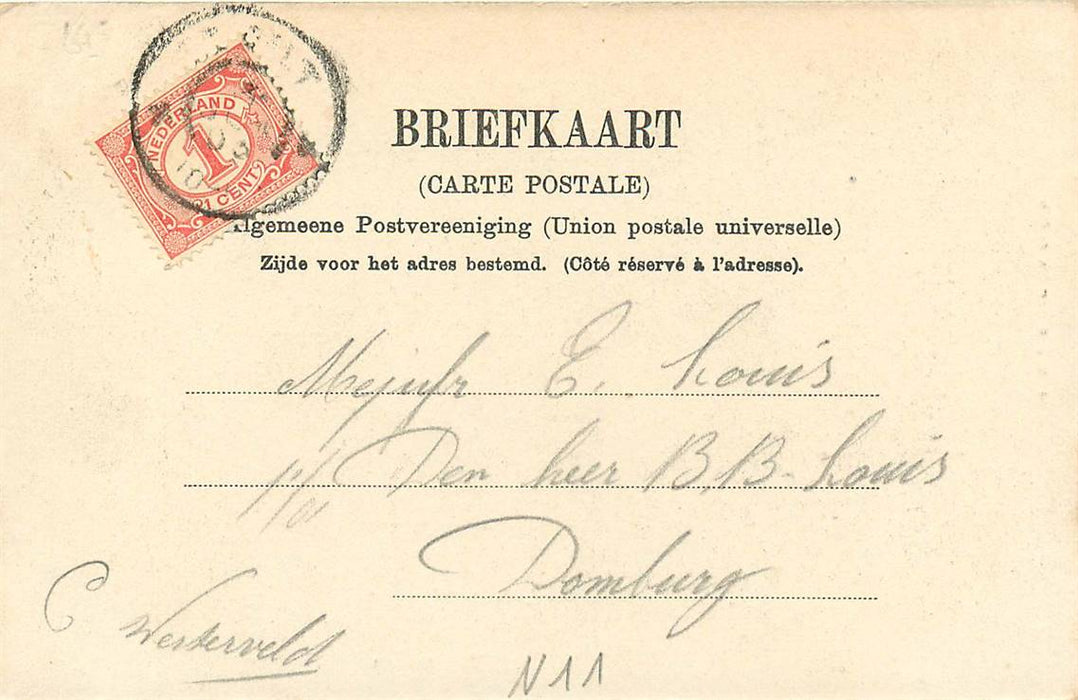 NEDERLAND
1
1 CENT
BRIEFKAART
(CARTE POSTALE)
Algemeene Postvereeniging (Union postale universelle)
Zijde voor het adres bestemd. (Côté réservé à l'adresse).
Mejufr E. Louis
p/a Den heer B.B. Louis
Domburg
C Westerveldt
N11